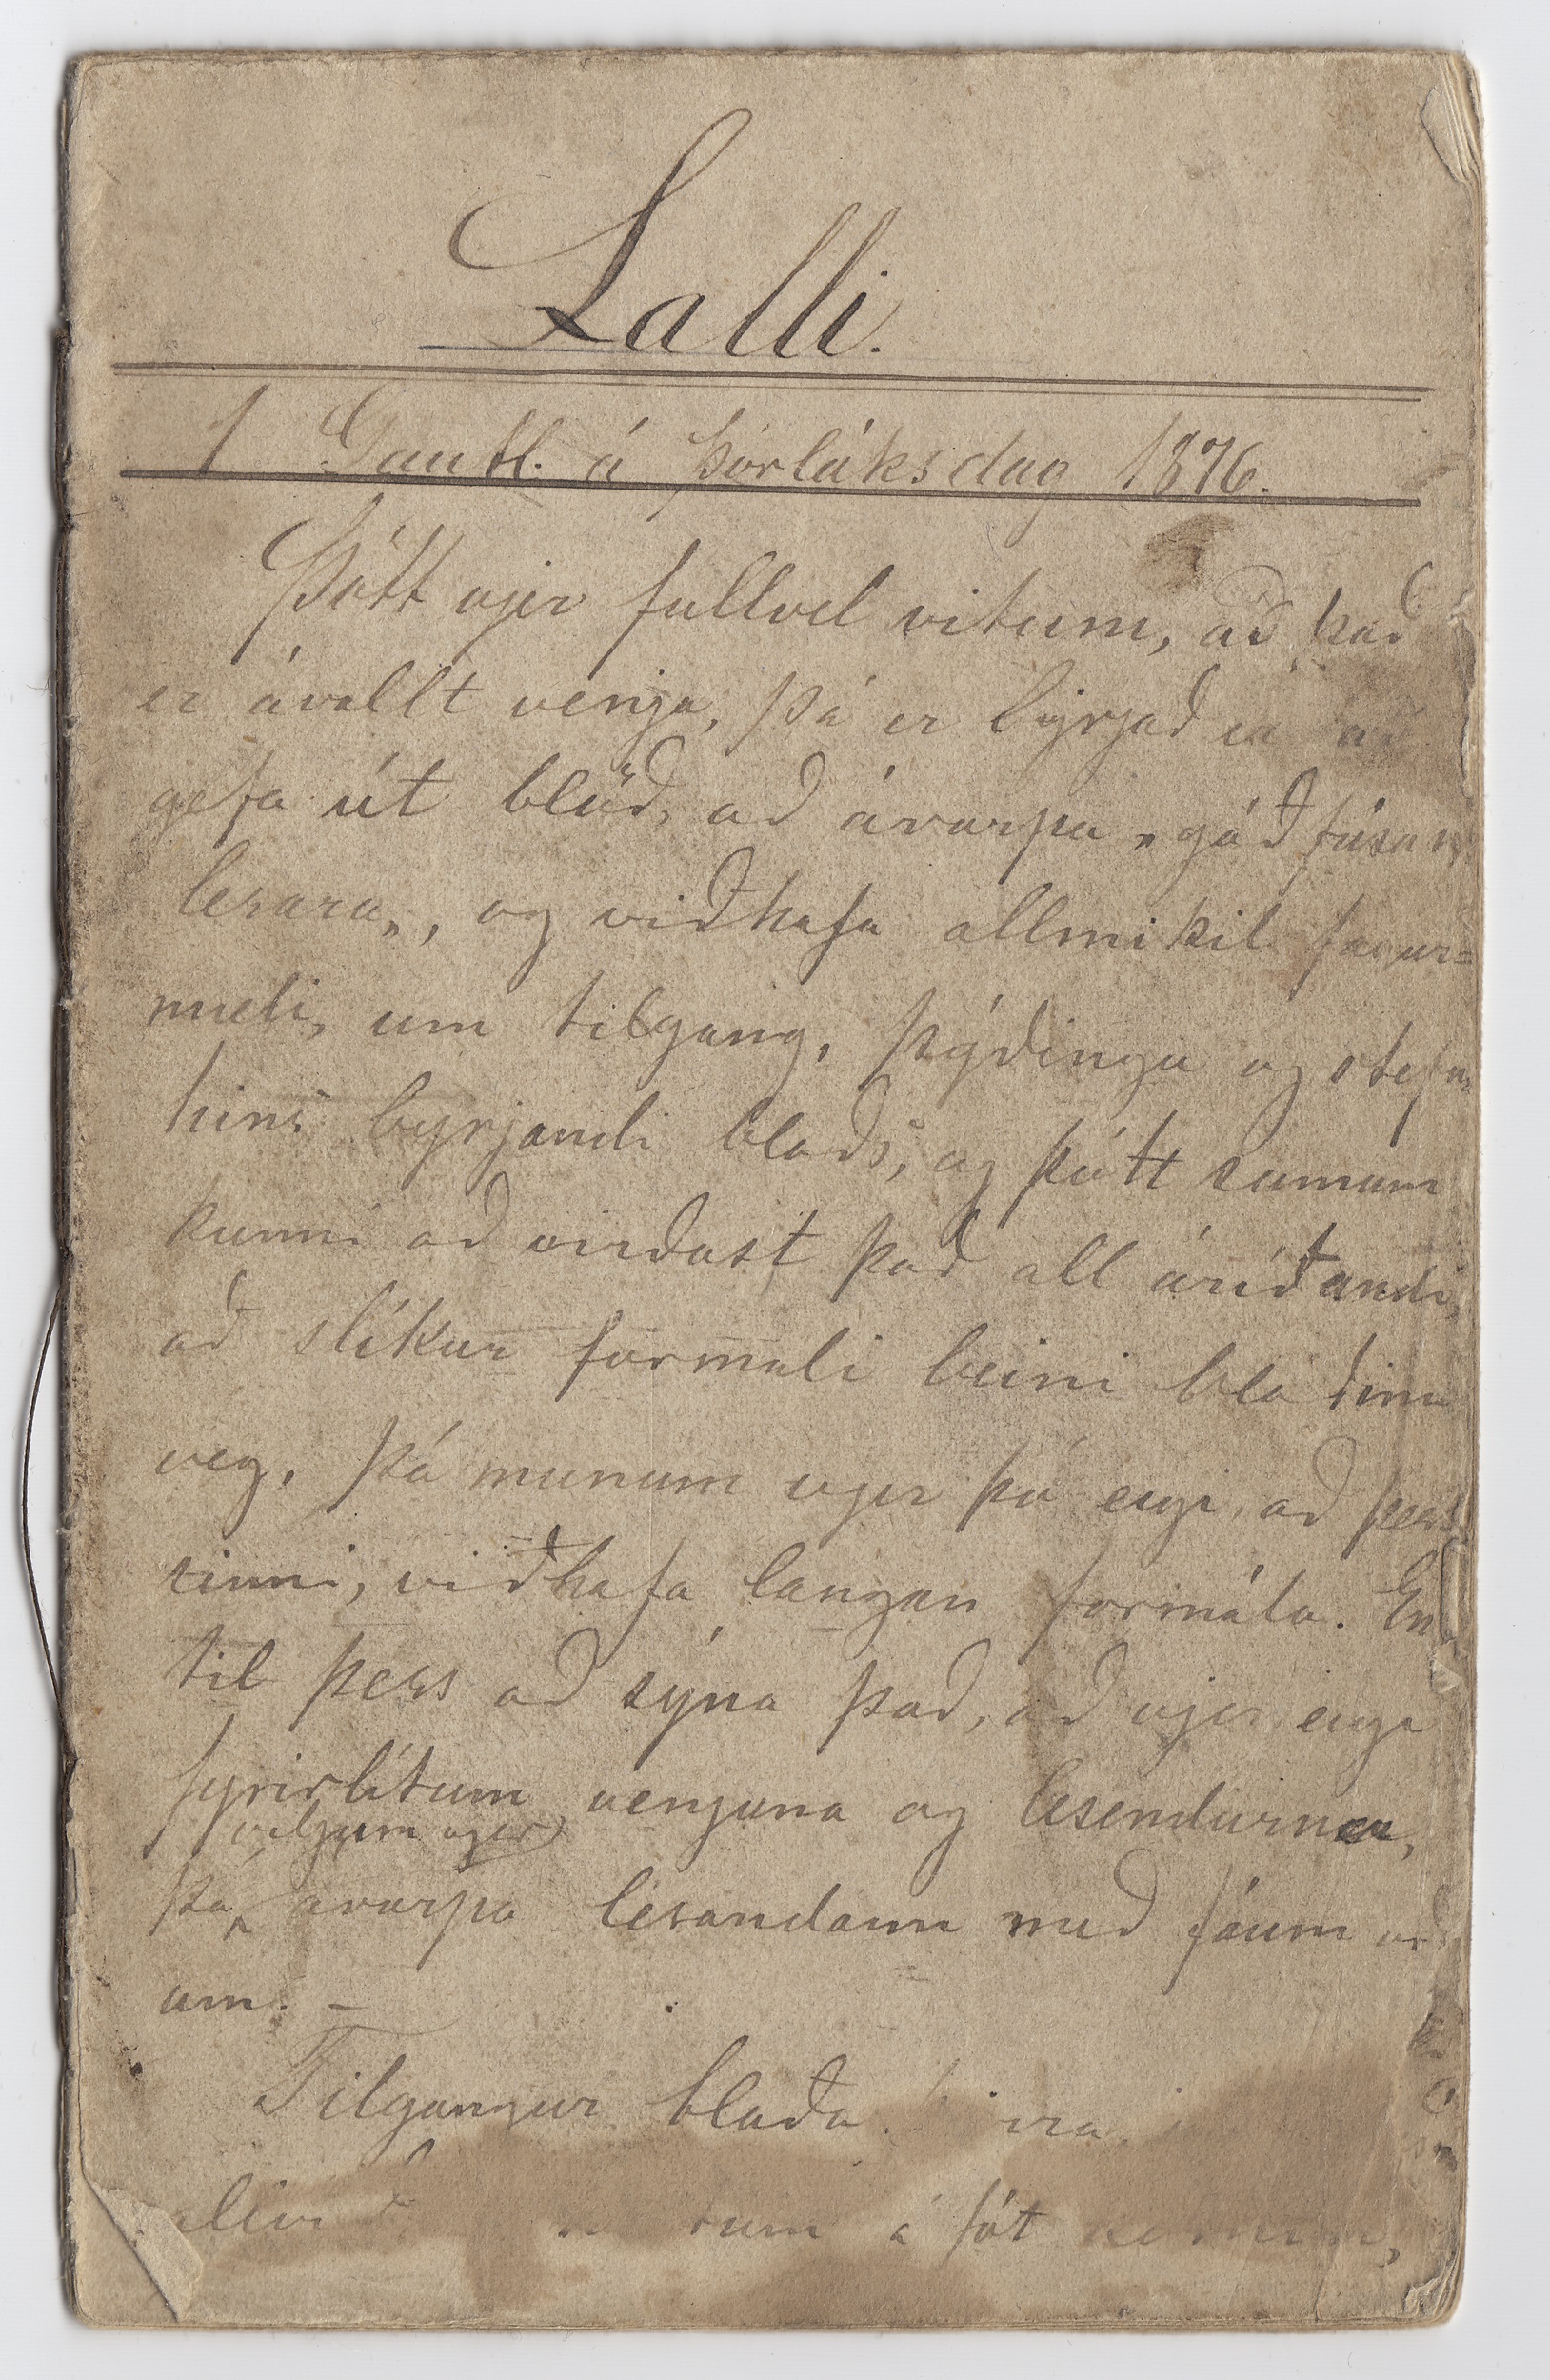 Lalli.
1 Gautl. á Þorláksdag 1876.
Þótt vjer fullvel vitum, að það
er ávallt venja, þá er byrjað er að
gefa út blöð, að ávarpa „góðfúsan
lesara„, og viðhafa allmikil fagur=
mæli, um tilgang, þýðingu og stefnu
hins byrjandi blaðs, og þótt sumum
kunni að virðast það all áríðandi,
að slíkur formáli beini blaðinu
veg, þá munum vjer þó eigi, að þessu
sinni, viðhafa langan formála. En
til þess að sýna það, að vjer eigi
fyrirlítum venjuna og lesendurna,
þá viljum vjer ávarpa lesandann með fáum orð
um. –
Tilgangur blaða
á fót